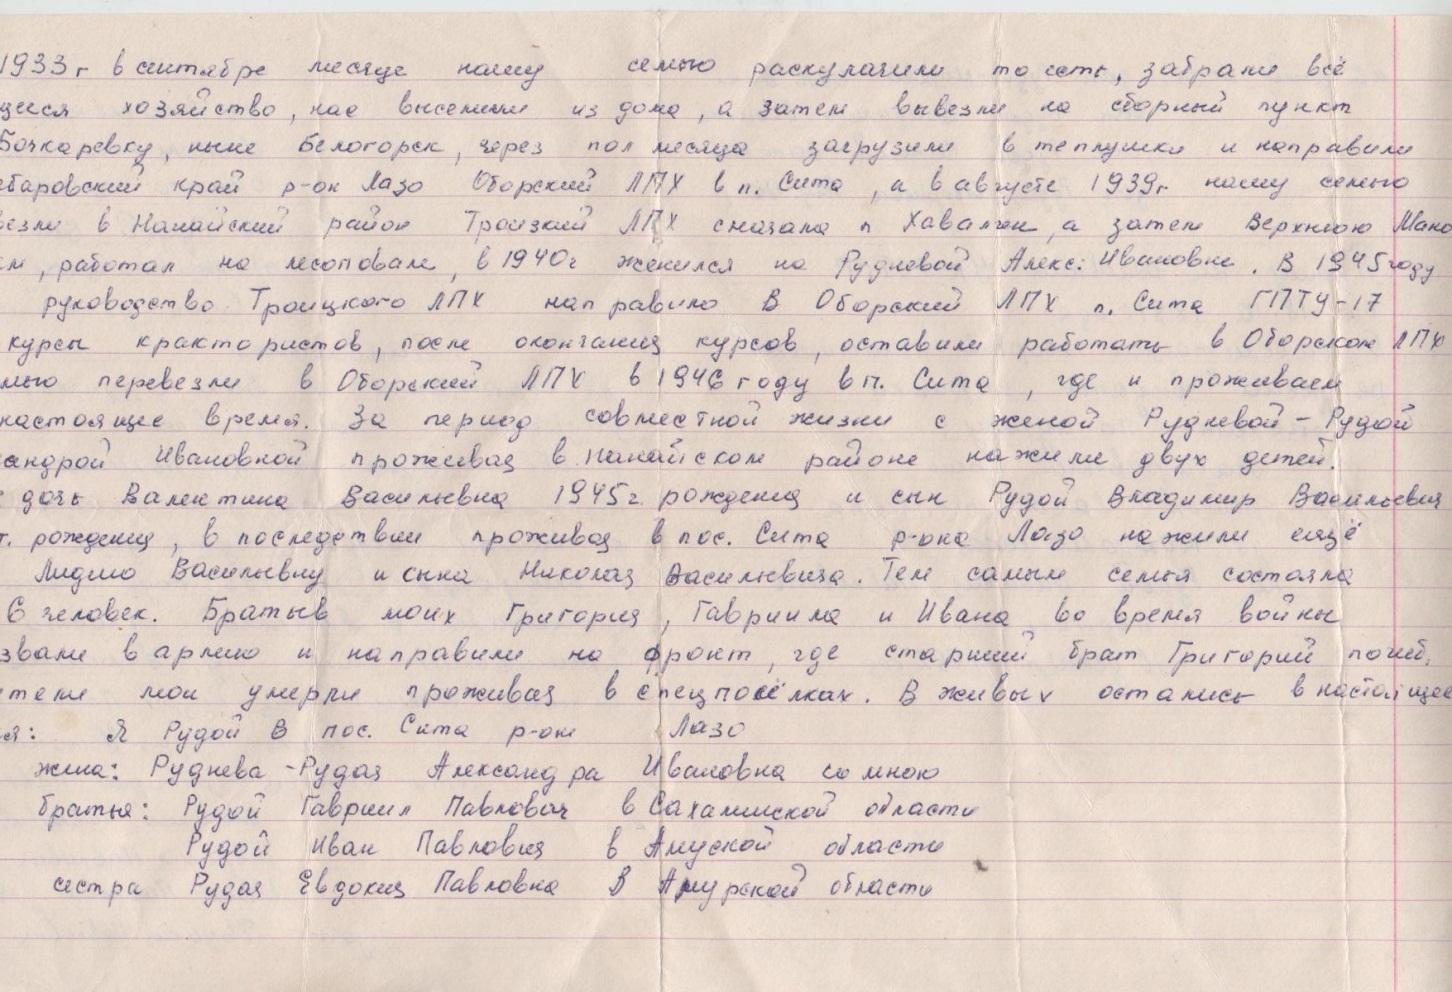 1933 г в сентябре месяце нашу семью раскулачили то есть, забрали всё
щееся хозяйство, нас выселили из дома, а затем вывезли на сборный пункт
Бочкаревку, ныне Белогорск, через пол месяца загрузили в теплушки и направили
баровский край р-он Лазо Оборский ЛПХ в п. Сита, а в августе 1939 г нашу семью
везли в Нанайский район Троицкий ЛПХ сначала п а затем Верхнюю Мано
работал на лесоповале, в 1940 г женился на Рудневой Алекс: Ивановне. В 1945 году
руководство Троицкого ЛПХ направило в Оборский ЛПХ п. Сита ГПТУ-17
курсы крактористов, после окончания курсов, оставили работать в Оборском ЛПХ
мью перевезли в Оборский ЛПХ в 1946 году в п. Сита, где и проживаем
настоящее время. За период совместной жизни с женой Рудневой-Рудой
сандрой Ивановной проживая в Нанайском районе нажили двух детей.
дочь Валентина Васильевна 1945 г. рождения и сын Рудой Владимир Васильевич
г. рождения, в последствии проживая в пос. Сита р-она Лазо нажили ещё
Лидию Васильевну и сына Николая Васильевича. Тем самым семья состояла
6 человек. Братьев моих Григория, Гавриила и Ивана во время войны
звали в армию и направили на фронт, где старший брат Григорий погиб,
мои умерли проживая в спецпосёлках. В живых остались в настоящее
я: Я Рудой В пос. Сита р-он Лазо
жена: Руднева-Рудая Александра Ивановна со мною
братья: Рудой Гавриил Павлович в Сахалинской области
Рудой Иван Павлович в Амуской области
сестра Рудая Евдокия Павловна в Амурской области